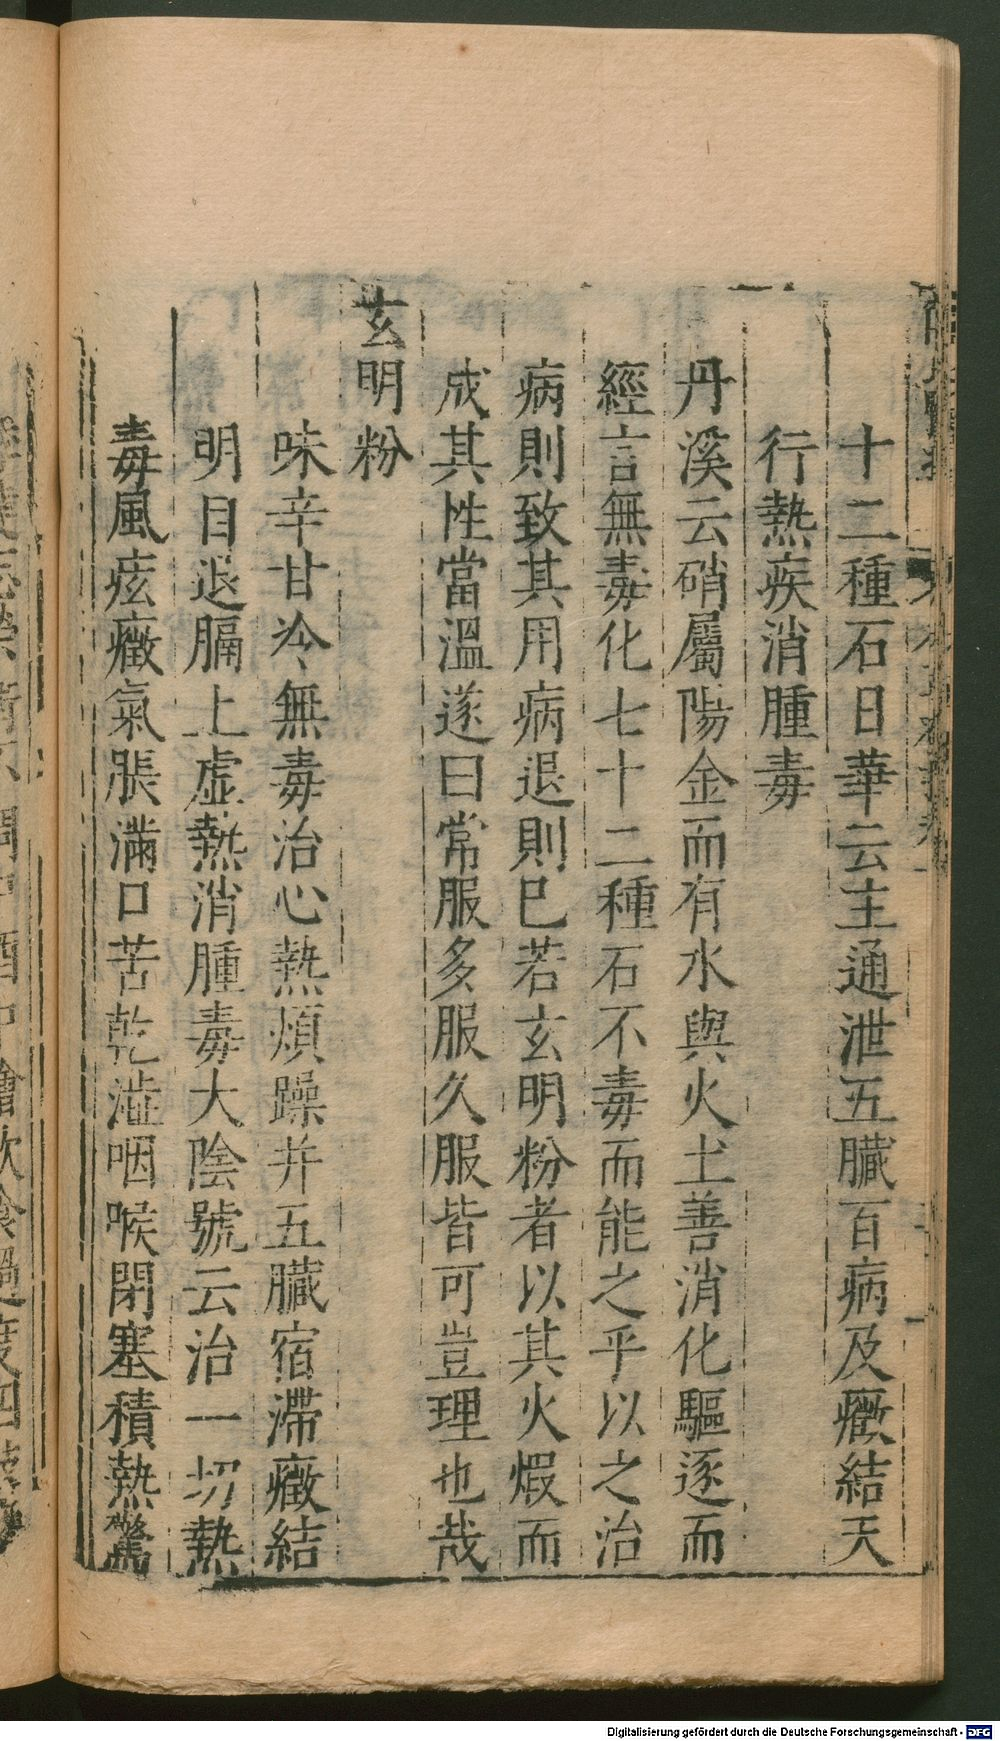 十二種石日華云主通泄五臟百病及癥結天
行熱疾消腫毒
丹溪云硝屬陽金而有水與火土善消化驅逐而
經言無毒化七十二種石不毒而能之乎以之治
病則致其用病退則已若玄明粉者以其火煆而
成其性當溫遂曰常服多服久服皆可豈理也哉
玄明粉
味辛甘冷無毒治心熱煩躁并五臟宿滯癥結
明目退膈上虛熱消腫毒大陰號云治一切熱
毒風痃癥氣脹滿口苦乾澁咽喉閉塞積熱驚
Digitalisierung gefördert durch die Deutsche Forschungsgemeinschaft - DFG